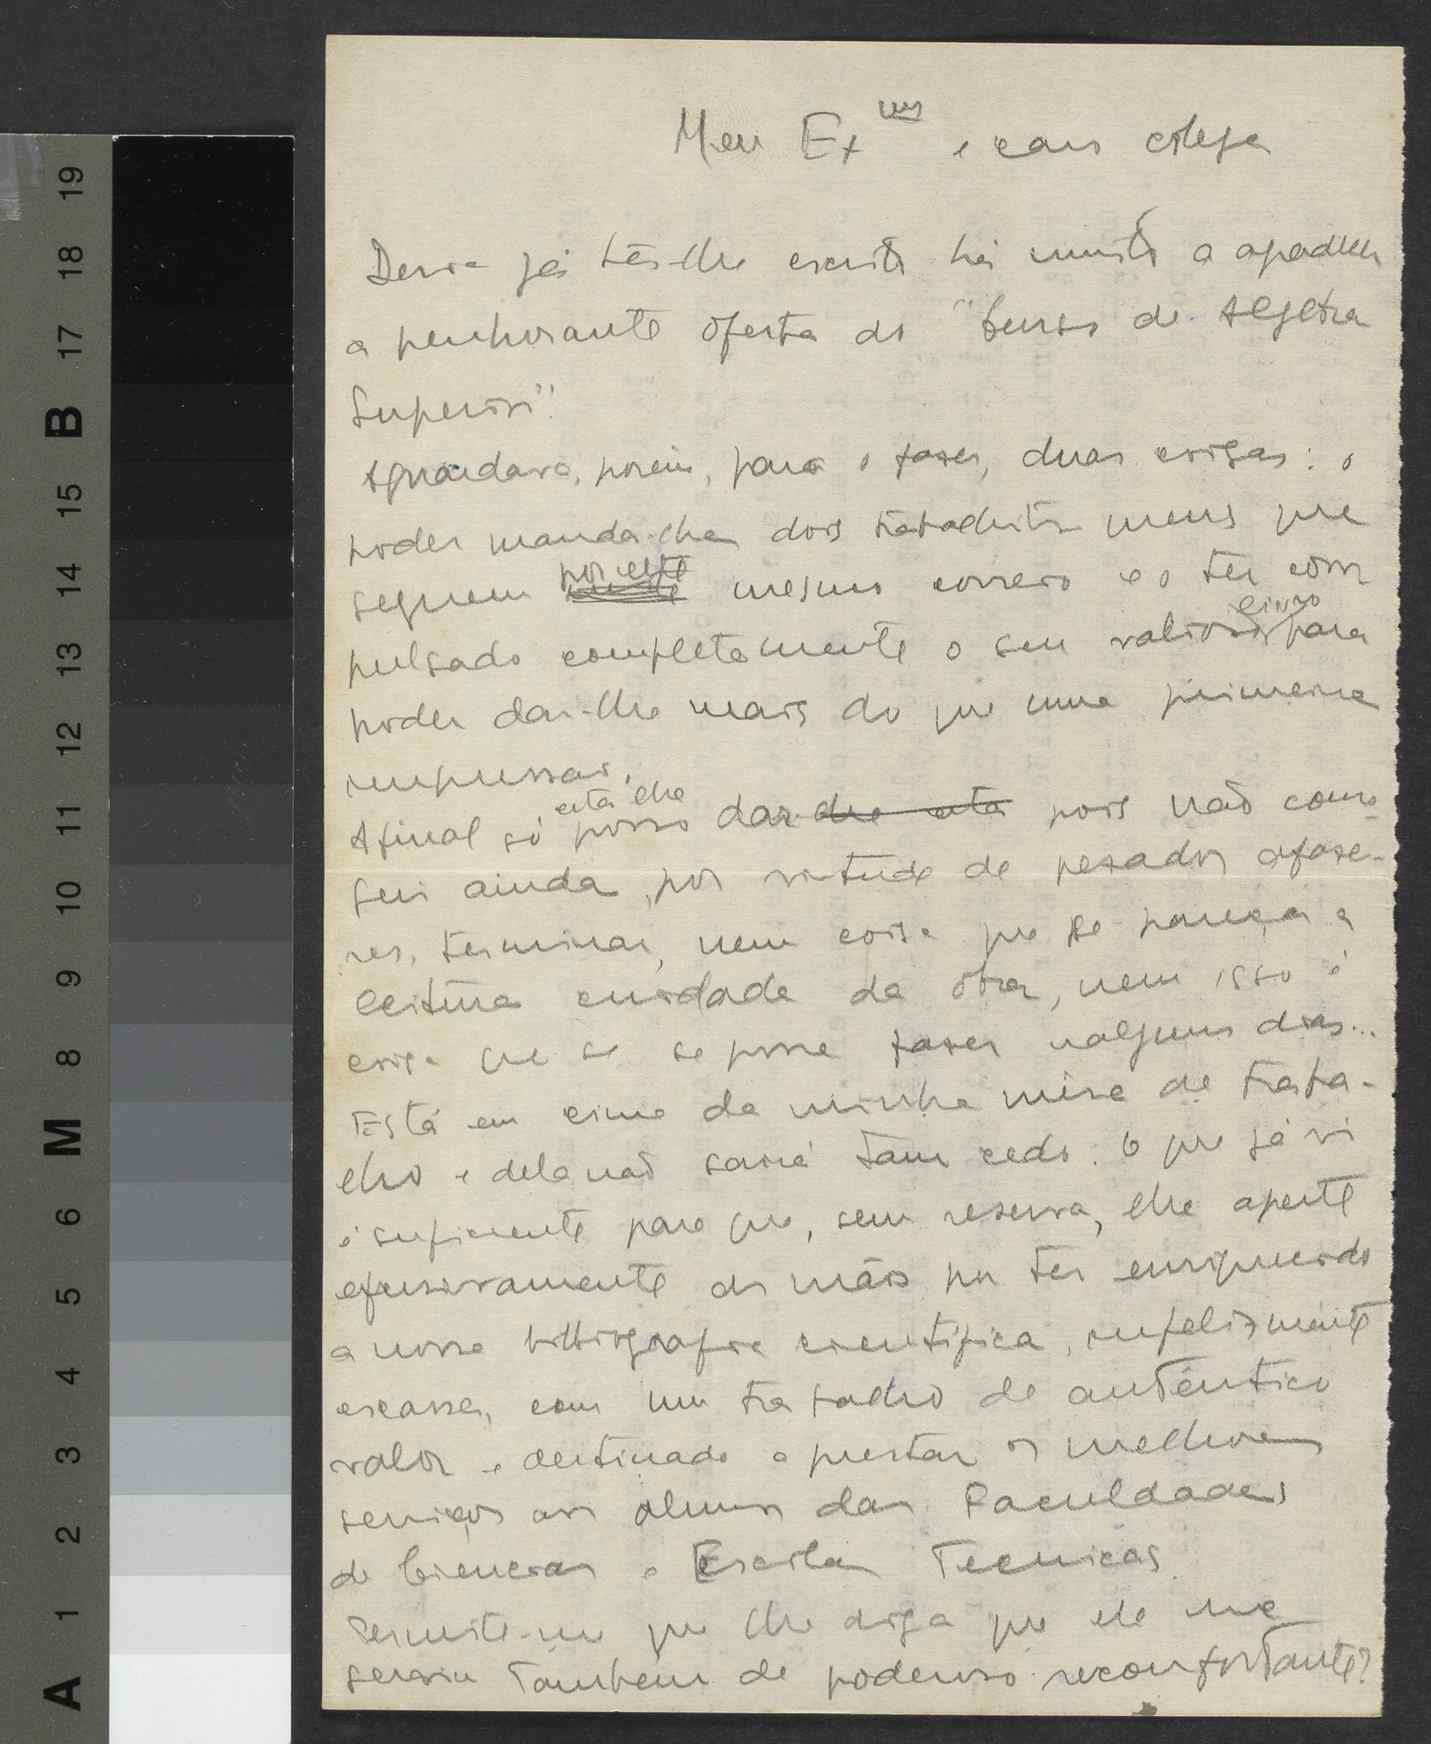 Meu Exmo e caro colega
Devia já têr-lhe escrito há muito a agradecer
a penhorante oferta do "Curso de Algebra
Superior".
Aguardava, porém, para o fazer, duas coisas: o
poder mandar-lhe dois trabalhitos meus que
seguem por este mesmo correio e o ter com
pulsado completamente o seu valioso livro para
poder dar-lhe mais do que uma primeira
impressão.
Afinal só posso esta lhe dar-lhe esta pois não conse-
gui ainda, por virtude de pesados afaze-
res, terminar, nem coisa que se pareça a
leitura cuidada da obra, nem isso é
coisa que se se possa fazer nalguns dias...
Está em cima da minha mesa de traba-
lho e dela não sairá tam cedo. O que já vi
é suficiente para que, sem reserva, lhe aperte
efusivamente as mãos por ter enriquecido
a nossa bibliografia científica, infelizmente
escassa, com um trabalho de autêntico
valor e destinado a prestar os melhores
serviços aos alunos das Faculdades
de Ciencias e Escolas Tecnicas.
Permite-me que lhe diga que ele me
serviu também de poderoso reconfortante?
A 1 2 3 4 5 6 M 8 9 10 11 12 13 14 15 B 17 18 19